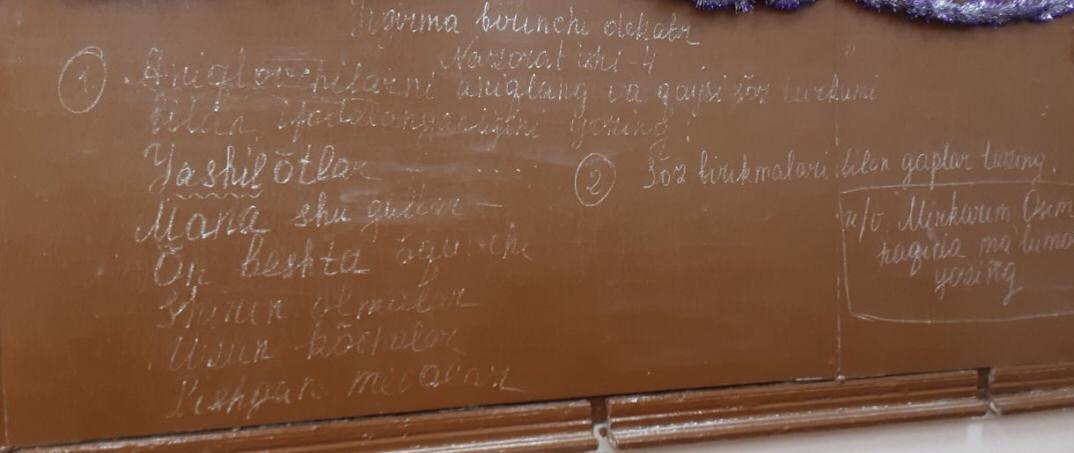 Yigirma birinchi dekabr
Nazorat ishi-4
① Aniqlovchilarni aniqlang va qaysi sōz turkumi
bilan ifodalanganligini yozing.
Yashil ōtlar
Mana shu gullar
Ōn beshta ōquvchi
Shirin olmalar
Uzun kōchalar
Pishgan mevalar
② Sōz birikmalari bilan gaplar tuzing.
u/v. Mirkarim Osim
haqida ma'lumo
yozing